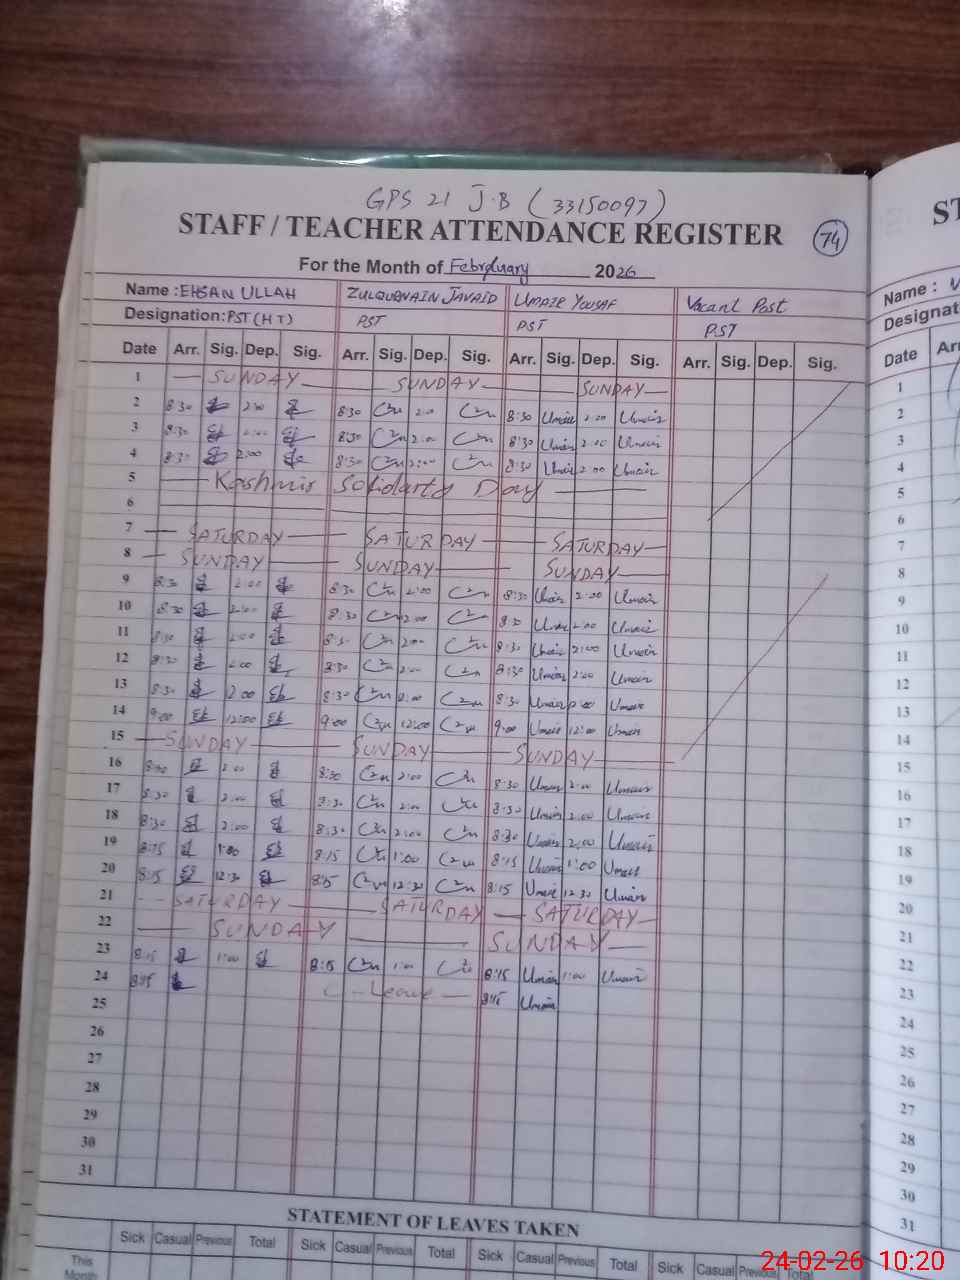 GPS 21 J.B (33150097)
STAFF / TEACHER ATTENDANCE REGISTER
74
For the Month of February 2026
Name : EHSAN ULLAH ZULQURNAIN JAVAID UMAIR YOUSAF Vacant Post
Designation: PST (H T) PST PST P.ST
Date Arr. Sig. Dep. Sig. Arr. Sig. Dep. Sig. Arr. Sig. Dep. Sig. Arr. Sig. Dep. Sig.
1 SUNDAY SUNDAY SUNDAY
2 8:30 2:00 8:30 2:00 8:30 Umair 2:00 Umair
3 8:30 2:00 8:30 2:00 8:30 Umair 2:00 Umair
4 8:30 2:00 8:30 2:00 8:30 Umair 2:00 Umair
5 Kashmir Solidarty Day
6
7 SATURDAY SATURDAY SATURDAY
8 SUNDAY SUNDAY SUNDAY
9 8:30 2:00 8:30 2:00 8:30 Umair 2:00 Umair
10 8:30 2:00 8:30 2:00 8:30 Umair 2:00 Umair
11 8:30 2:00 8:30 2:00 8:30 Umair 2:00 Umair
12 8:30 2:00 8:30 2:00 8:30 Umair 2:00 Umair
13 8:30 2:00 8:30 2:00 8:30 Umair 2:00 Umair
14 9:00 12:00 9:00 12:00 9:00 Umair 12:00 Umair
15 SUNDAY SUNDAY SUNDAY
16 8:30 2:00 8:30 2:00 8:30 Umair 2:00 Umair
17 8:30 2:00 8:30 2:00 8:30 Umair 2:00 Umair
18 8:30 2:00 8:30 2:00 8:30 Umair 2:00 Umair
19 8:15 1:00 8:15 1:00 8:15 Umair 1:00 Umair
20 8:15 12:30 8:15 12:30 8:15 Umair 12:30 Umair
21 SATURDAY SATURDAY SATURDAY
22 SUNDAY SUNDAY
23 8:15 1:00 8:15 1:00 8:15 Umair 1:00 Umair
24 8:15 C-Leave 8:15 Umair
25
26
27
28
29
30
31
STATEMENT OF LEAVES TAKEN
Sick Casual Previous Total Sick Casual Previous Total Sick Casual Previous Total Sick Casual Previous Total
This Month
ST
Name :
Designat
Date Arr
1
2
3
4
5
6
7
8
9
10
11
12
13
14
15
16
17
18
19
20
21
22
23
24
25
26
27
28
29
30
31
24-02-26 10:20